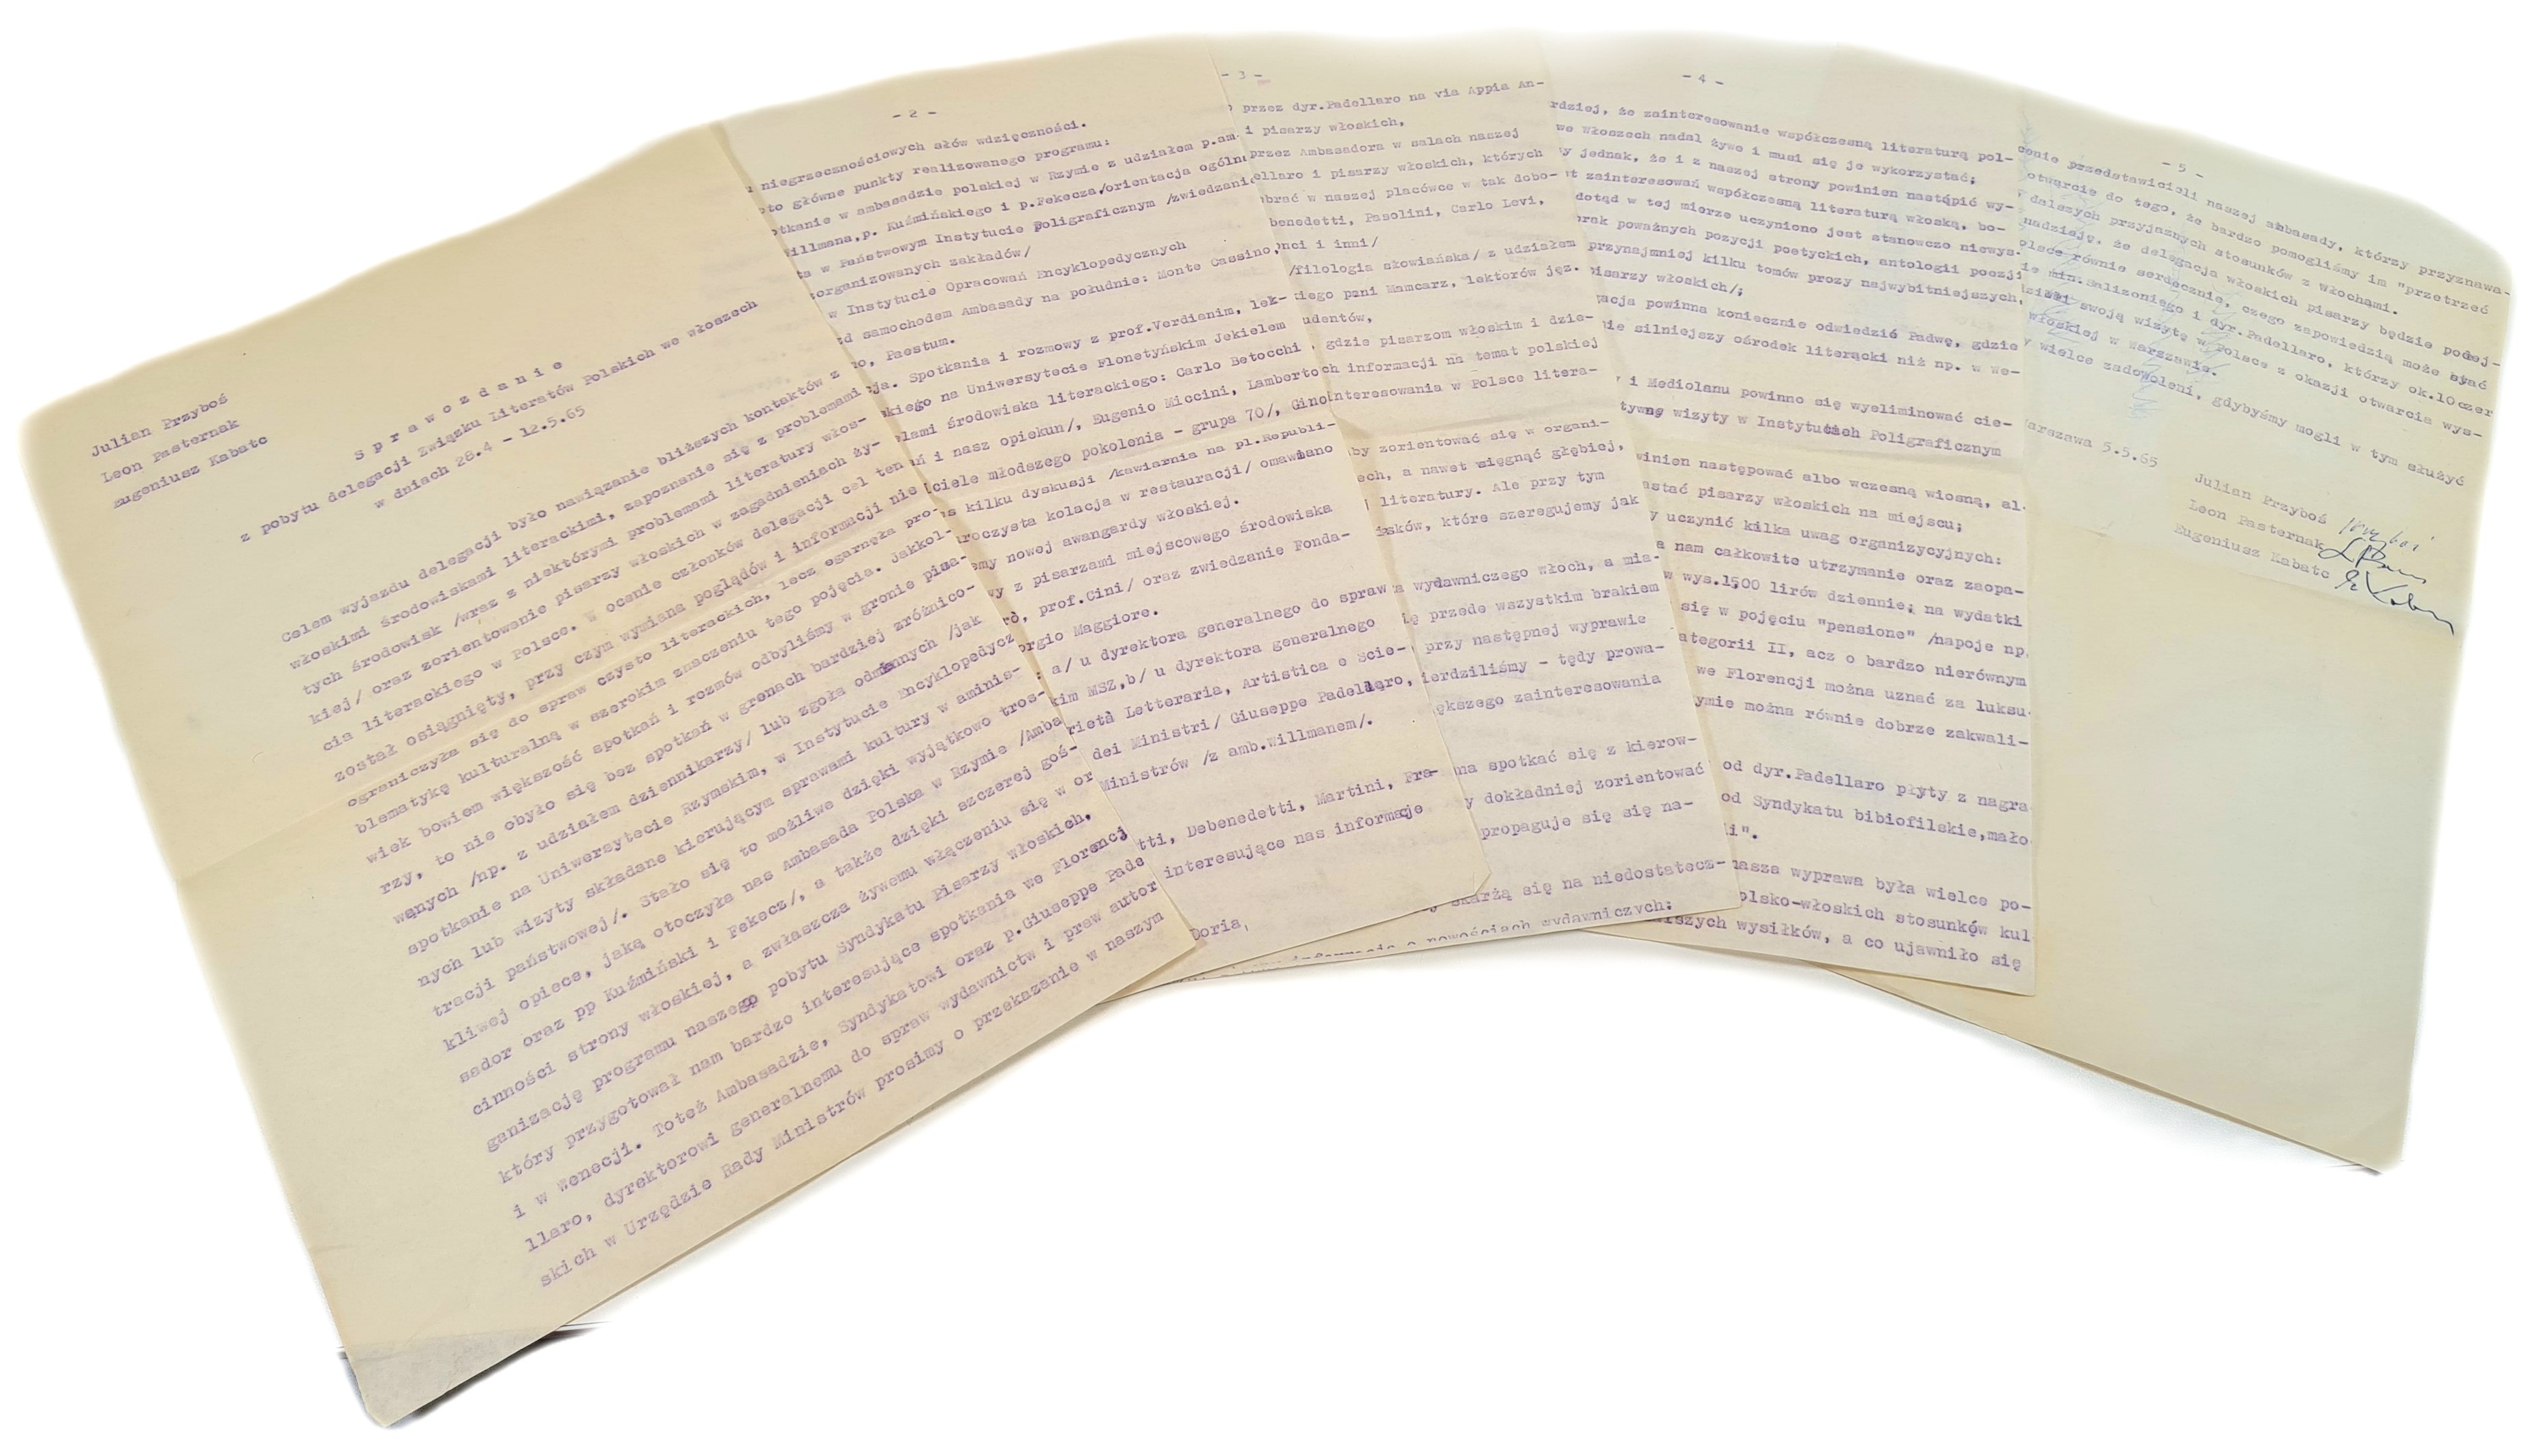 Julian Przyboś
Leon Pasternak
Eugeniusz Kabatc
S p r a w o z d a n i e
z pobytu delegacji Związku Literatów Polskich we Włoszech
w dniach 28.4 - 12.5.65
Celem wyjazdu delegacji było nawiązanie bliższych kontaktów z
włoskimi środowiskami literackimi, zapoznanie się z problemami
tych środowisk /wraz z niektórymi problemami literatury włos-
kiej/ oraz zorientowanie pisarzy włoskich w zagadnieniach ży-
cia literackiego w Polsce. W ocenie członków delegacji cel ten
został osiągnięty, przy czym wymiana poglądów i informacji nie
ograniczyła się do spraw czysto literackich, lecz ogarnęła pro-
blematykę kulturalną w szerokim znaczeniu tego pojęcia. Jakkol-
wiek bowiem większość spotkań i rozmów odbyliśmy w gronie pisa-
rzy, to nie obyło się bez spotkań w gronach bardziej zróżnico-
wanych /np. z udziałem dziennikarzy/ lub zgoła odmiennych /jak
spotkanie na Uniwersytecie Rzymskim, w Instytucie Encyklopedycz
nych lub wizyty składane kierującym sprawami kultury w aminis-
tracji państwowej/. Stało się to możliwe dzięki wyjątkowo tros-
kliwej opiece, jaką otoczyła nas Ambasada Polska w Rzymie /Amba
sador oraz pp Kuźmiński i Fekecz/, a także dzięki szczerej goś-
cinności strony włoskiej, a zwłaszcza żywemu włączeniu się w or
ganizację programu naszego pobytu Syndykatu Pisarzy Włoskich,
który przygotował nam bardzo interesujące spotkania we Florencj
i w Wenecji. Toteż Ambasadzie, Syndykatowi oraz p.Giuseppe Pade
llaro, dyrektorowi generalnemu do spraw wydawnictw i praw autor
skich w Urzędzie Rady Ministrów prosimy o przekazanie w naszym
- 2 -
niegrzecznościowych słów wdzięczności.
oto główne punkty realizowanego programu:
otkanie w ambasadzie polskiej w Rzymie z udziałem p.am-
Willmana,p. Kuźmińskiego i p.Fekecza/orientacja ogóln
ta w Państwowym Instytucie Poligraficznym /zwiedzanie
organizowanych zakładów/
w Instytucie Opracowań Encyklopedycznych
zd samochodem Ambasady na południe: Monte Cassino,
no, Paestum.
cja. Spotkania i rozmowy z prof.Verdianim, lek-
skiego na Uniwersytecie Florentyńskim Jekielem
elami środowiska literackiego: Carlo Betocchi
ń i nasz opiekun/, Eugenio Miccini, Lamberto
iciele młodszego pokolenia - grupa 70/, Gino
s kilku dyskusji /kawiarnia na pl.Republi-
roczysta kolacja w restauracji/ omawiano
emy nowej awangardy włoskiej.
wy z pisarzami miejscowego środowiska
rò, prof.Cini/ oraz zwiedzanie Fonda-
orgio Maggiore.
: a/ u dyrektora generalnego do spraw
kim MSZ,b/ u dyrektora generalnego
rietà Letteraria, Artistica e Scie-
dei Ministri/ Giuseppe Padellaro,
Ministrów /z amb.Willmanem/.
tti, Debenedetti, Martini, Fra-
interesujące nas informacje
- 3 -
przez dyr.Padellaro na via Appia An-
i pisarzy włoskich,
przez Ambasadora w salach naszej
ellaro i pisarzy włoskich, których
obrać w naszej placówce w tak dobo-
benedetti, Pasolini, Carlo Levi,
nci i inni/
/filologia słowiańska/ z udziałem
kiego pani Mamcarz, lektorów jęz.
udentów,
, gdzie pisarzom włoskim i dzie-
ch informacji na temat polskiej
nteresowania w Polsce litera-
by zorientować się w organi-
ech, a nawet sięgnąć głębiej,
literatury. Ale przy tym
sków, które szeregujemy jak
a wydawniczego Włoch, a mia-
ię przede wszystkim brakiem
przy następnej wyprawie
ierdziliśmy - tędy prowa-
ększego zainteresowania
na spotkać się z kierow-
y dokładniej zorientować
propaguje się się na-
skarżą się na niedostatecz-
informacje o nowościach wydawniczych:
Doria,
- 4 -
rdziej, że zainteresowanie współczesną literaturą pol-
we Włoszech nadal żywe i musi się je wykorzystać;
y jednak, że i z naszej strony powinien nastąpić wy-
t zainteresowań współczesną literaturą włoską, bo-
dotąd w tej mierze uczyniono jest stanowczo niewys-
brak poważnych pozycji poetyckich, antologii poezji
przynajmniej kilku tomów prozy najwybitniejszych,
pisarzy włoskich/;
gacja powinna koniecznie odwiedzić Padwę, gdzie
ie silniejszy ośrodek literacki niż np. w We-
i Mediolanu powinno się wyeliminować cie-
tywnę wizyty w Instytutach Poligraficznym
winien następować albo wczesną wiosną, al-
astać pisarzy włoskich na miejscu;
y uczynić kilka uwag organizycyjnych:
a nam całkowite utrzymanie oraz zaopa-
w wys.1500 lirów dziennie; na wydatki
się w pojęciu "pensione" /napoje np.
ategorii II, acz o bardzo nierównym
we Florencji można uznać za luksu-
ymie można równie dobrze zakwali-
od dyr.Padellaro płyty z nagra
od Syndykatu bibiofilskie,mało
li".
nasza wyprawa była wielce po-
olsko-włoskich stosunków kul
szych wysiłków, a co ujawniło się
- 5 -
przedstawicieli naszej ambasady, którzy przyznawa-
otwarcie do tego, że bardzo pomogliśmy im "przetrzeć
dalszych przyjaznych stosunków z Włochami.
nadzieję, że delegacja włoskich pisarzy będzie podej-
olsce równie serdecznie, czego zapowiedzią może stać
ie min.Salizoniego i dyr.Padellaro, którzy ok.10czer
swoją wizytę w Polsce z okazji otwarcia wys-
włoskiej w Warszawie.
y wielce zadowoleni, gdybyśmy mogli w tym służyć
arszawa 5.5.65
Julian Przyboś
Leon Pasternak
Eugeniusz Kabatc